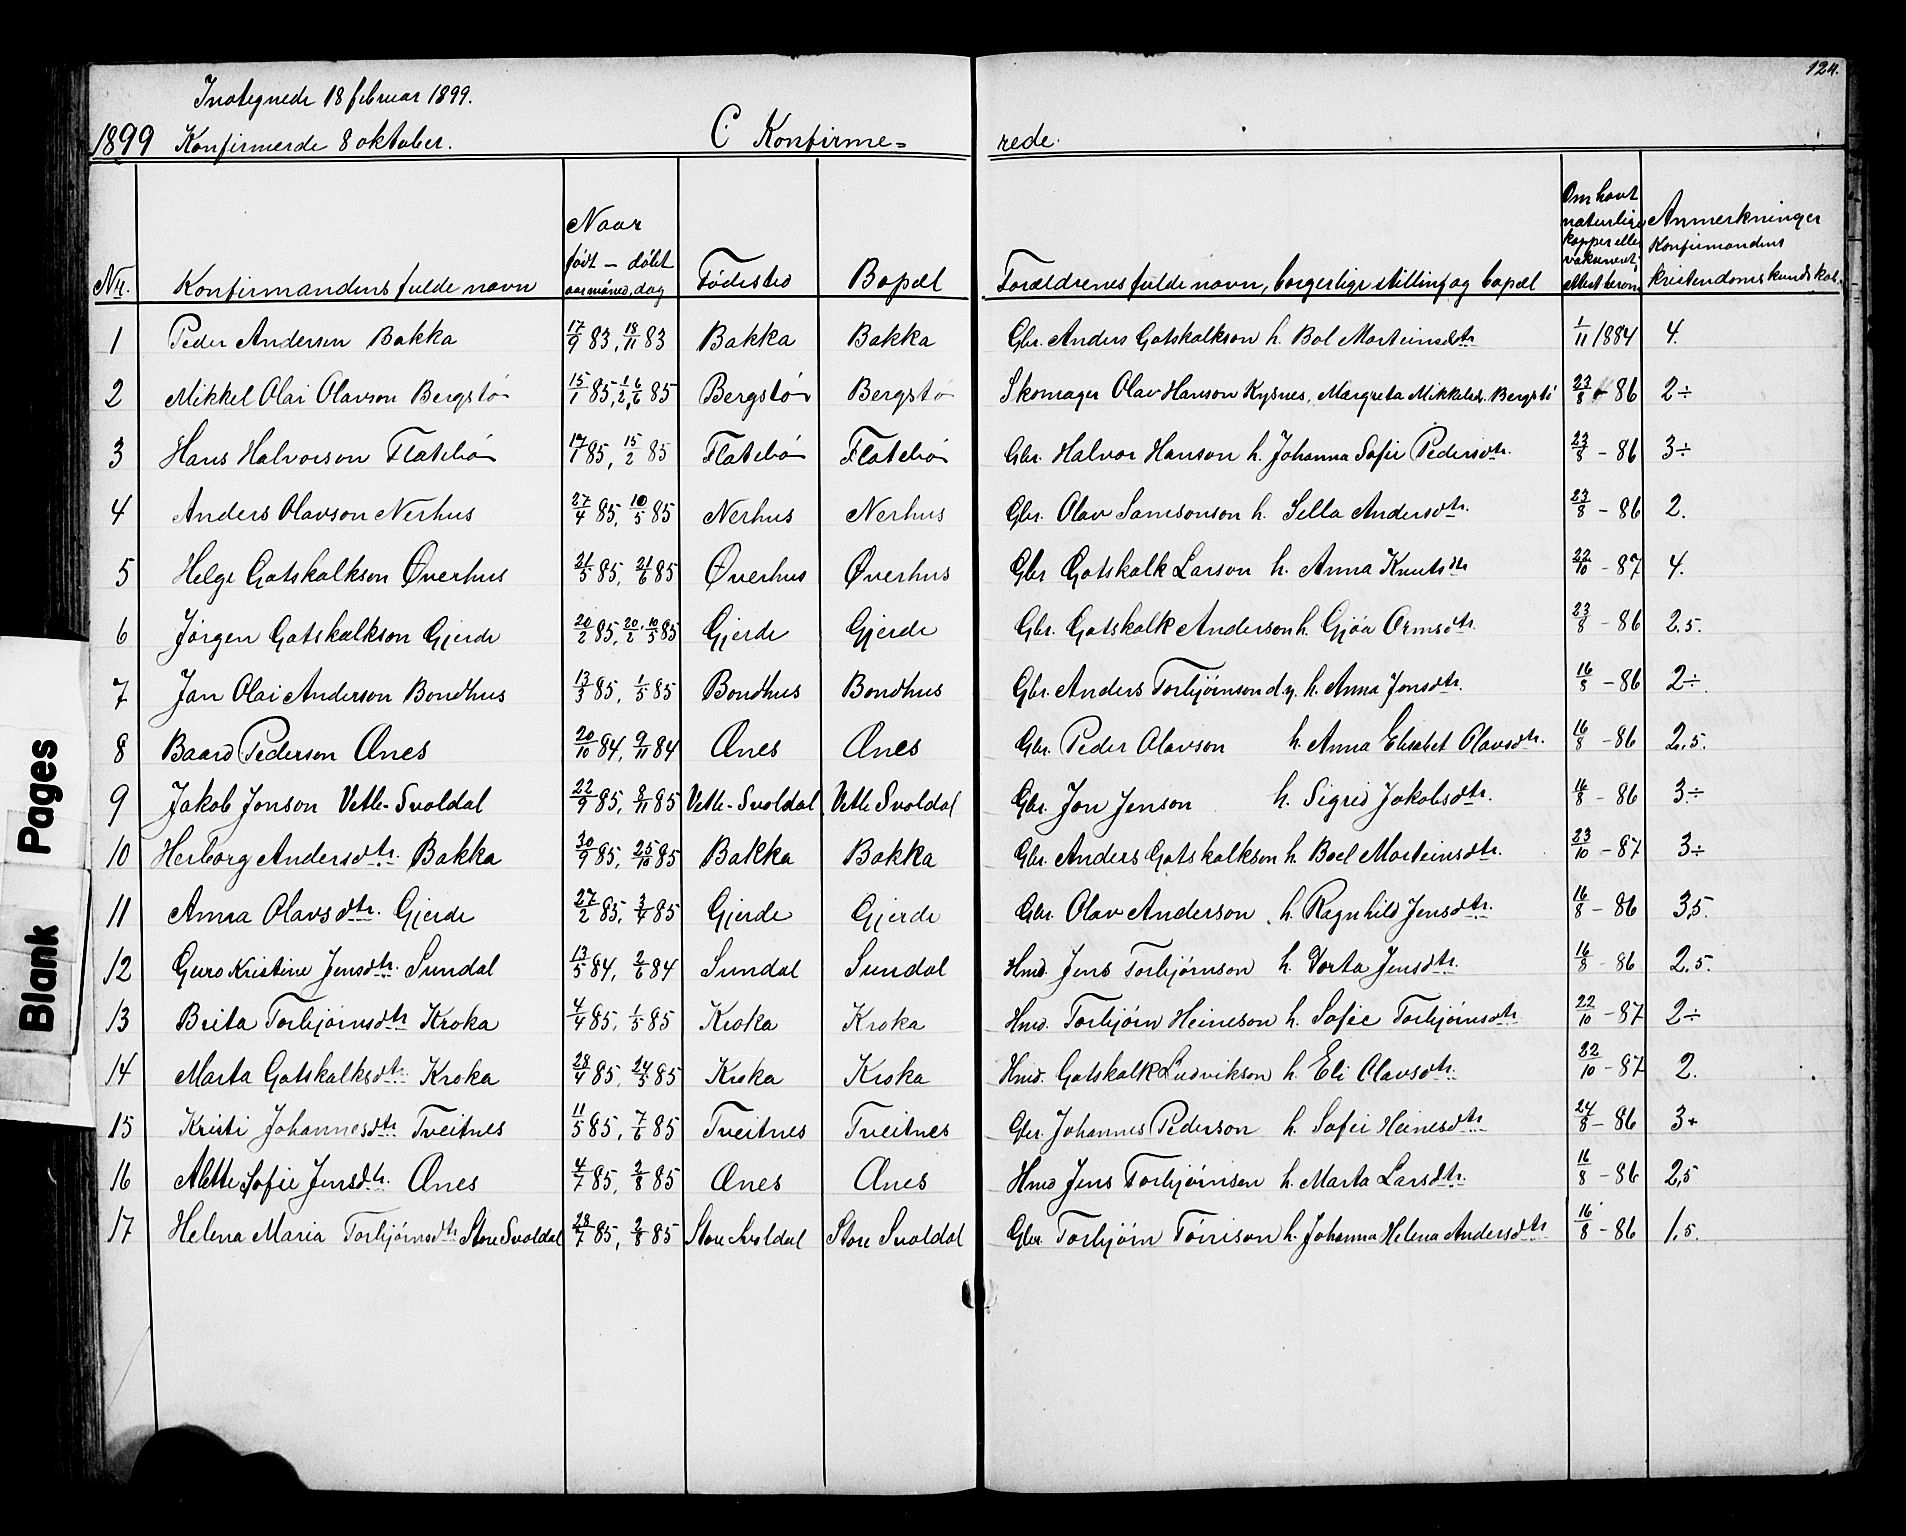 124.
Indtegnede 18 februar 1899.
1899 Konfirmerde 8 oktober. C Konfirme= rede.
Nr. Konfirmandens fulde navn Naar født – døbt aar maaned, dag Fødested Bopæl Forældrenes fulde navn, borgerlige stilling og bopæl Om havt naturlige kopper eller vaksineret, Anmerkninger Konfirmandens kristendomskundskab.
1 Peder Anderson Bakka 17/9 83, 18/11 83 Bakka Bakka Gbr. Anders Gotskalkson h. Bol Morteinsdtr 1/11 1884 4.
2 Mikkel Olai Olavson Bergstø 15/1 85, 1/2, 6/6 85 Bergstø Bergstø Skomager Olav Hanson Kysnes, Margreta Mikkelsd. Bergstø 23/8 - 86 2÷
3 Hans Halvorson Flatebø 17/1 85, 15/2 85 Flatebø Flatebø Gbr. Halvor Hanson h. Johanna Sofie Pedersdtr. 23/8 - 86 3÷
4 Anders Olavson Nerhus 27/4 85, 10/5 85 Nerhus Nerhus Gbr. Olav Samsonson h. Sella Andersdtr. 23/8 - 86 2.
5 Helge Gotskalkson Øverhus 21/5 85, 21/6 85 Øverhus Øverhus Gbr Gotskalk Larson h. Anna Knutsdtr 22/10 - 87 4.
6 Jørgen Gotskalkson Gjerde 20/2 85, 20/2, 10/5 85 Gjerde Gjerde Gbr. Gotskalk Anderson h. Gjøa Ormsdtr. 23/8 - 86 2.5.
7 Jan Olai Anderson Bondhus 13/3 85, 1/5 85 Bondhus Bondhus Gbr. Anders Torbjørnson d.y. h. Anna Jonsdtr. 16/8 - 86 2÷.
8 Baard Pederson Ænes 20/10 84, 9/11 84 Ænes Ænes Gbr. Peder Olavson h. Anna Elisabet Olavsdtr. 16/8 - 86 2,5.
9 Jakob Jonson Vetle-Svoldal 22/9 85, 8/11 85 Vetle-Svoldal Vetle Svoldal Gbr. Jon Jenson h. Sigrid Jakobsdtr. 16/8 - 86 3÷
10 Herborg Andersdtr. Bakka 30/9 85, 25/10 85 Bakka Bakka Gbr. Anders Gotskalkson h. Boel Morteinsdtr. 23/10 - 87 3÷
11 Anna Olavsdtr. Gjerde 27/2 85, 3/4 85 Gjerde Gjerde Gbr. Olav Anderson h. Ragnhild Jensdtr. 16/8 - 86 3,5.
12 Guro Kristine Jensdtr. Sundal 13/5 84, 2/6 84 Sundal Sundal Hmd. Jens Torbjørnson h. Dorta Jensdtr. 16/8 - 86 2,5.
13 Brita Torbjørnsdtr Kroka 4/4 85, 1/5 85 Kroka Kroka Hmd. Torbjørn Heineson h. Sofie Torbjørnsdtr 22/10 - 87 2÷
14 Marta Gotskalksdtr. Kroka 28/4 85, 24/5 85 Kroka Kroka Hmd. Gotskalk Ludvikson h. Eli Olavsdtr. 22/10 - 87 2.
15 Kristi Johannesdtr Tveitnes 11/5 85, 7/6 85 Tveitnes Tveitnes Gbr. Johannes Pederson h. Sofie Heinesdtr 24/8 - 86 3+
16 Alette Sofie Jensdtr. Ænes 4/7 85, 2/8 85 Ænes Ænes Hmd Jens Torbjørnson h. Marta Larsdtr. 16/8 - 86 2,5
17 Helena Maria Torbjørnsdtr Store Svoldal 28/7 85, 2/8 85 Store Svoldal Store Svoldal Gbr Torbjørn Tørrison h. Johanna Helena Andersdtr 16/8 - 86 1,5.
Blank Pages